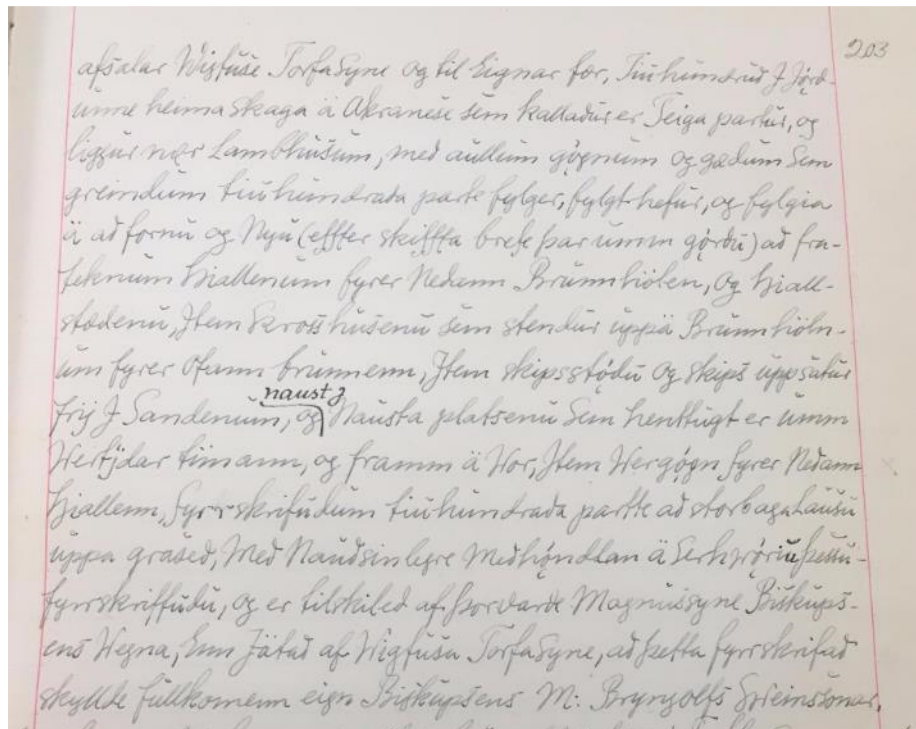 203
afsalar Wigfúse Torfasyne og til Eignar fær, Tiúhundrud J Jörd-
unne heimaskaga ä Akranese sem kalladúr er Teiga partúr, og
liggúr nær Lambhúsúm, med aullum gögnúm og gædúm Sem
greindúm tiúhúndrada parte fylger, fylgt hefúr, og fylgia
ä ad fornú og Nyú (effter skiffta brefe þar umm gördú) ad fra-
teknúm hiallenum fyrer Nedann Brúnnhölen, og hiall-
stædenú, Jtem Skross húsenú sem stendúr úppä Brúnnhöln-
úm fyrer Ofann brúnnenn, Jtem skipsstödú og skips úppsátúr
frij J Sandenúm, og naust J Nausta platsenú Sem hentúgt er úmm
Wertijdar timann, og framm ä Vor, Jtem Wergögn fyrer Nedann
hiallenn, fyrrskrifúdúm tiúhúndrada partte ad storbagalaúsú
úppa grased, Med Naúdsinlegre Medhöndlan ä Serhvöriu þessú
fyrrskriffúdú, og er tilskiled af Þorvarde Magnússyne Biskúps-
ens Wegna, Enn Jätad af Wigfúsa Torfasyne, ad þetta fyrrskrifad
skyllde fúllkomenn eign Biskúpsens M: Bryngolfs Sveinssonar,